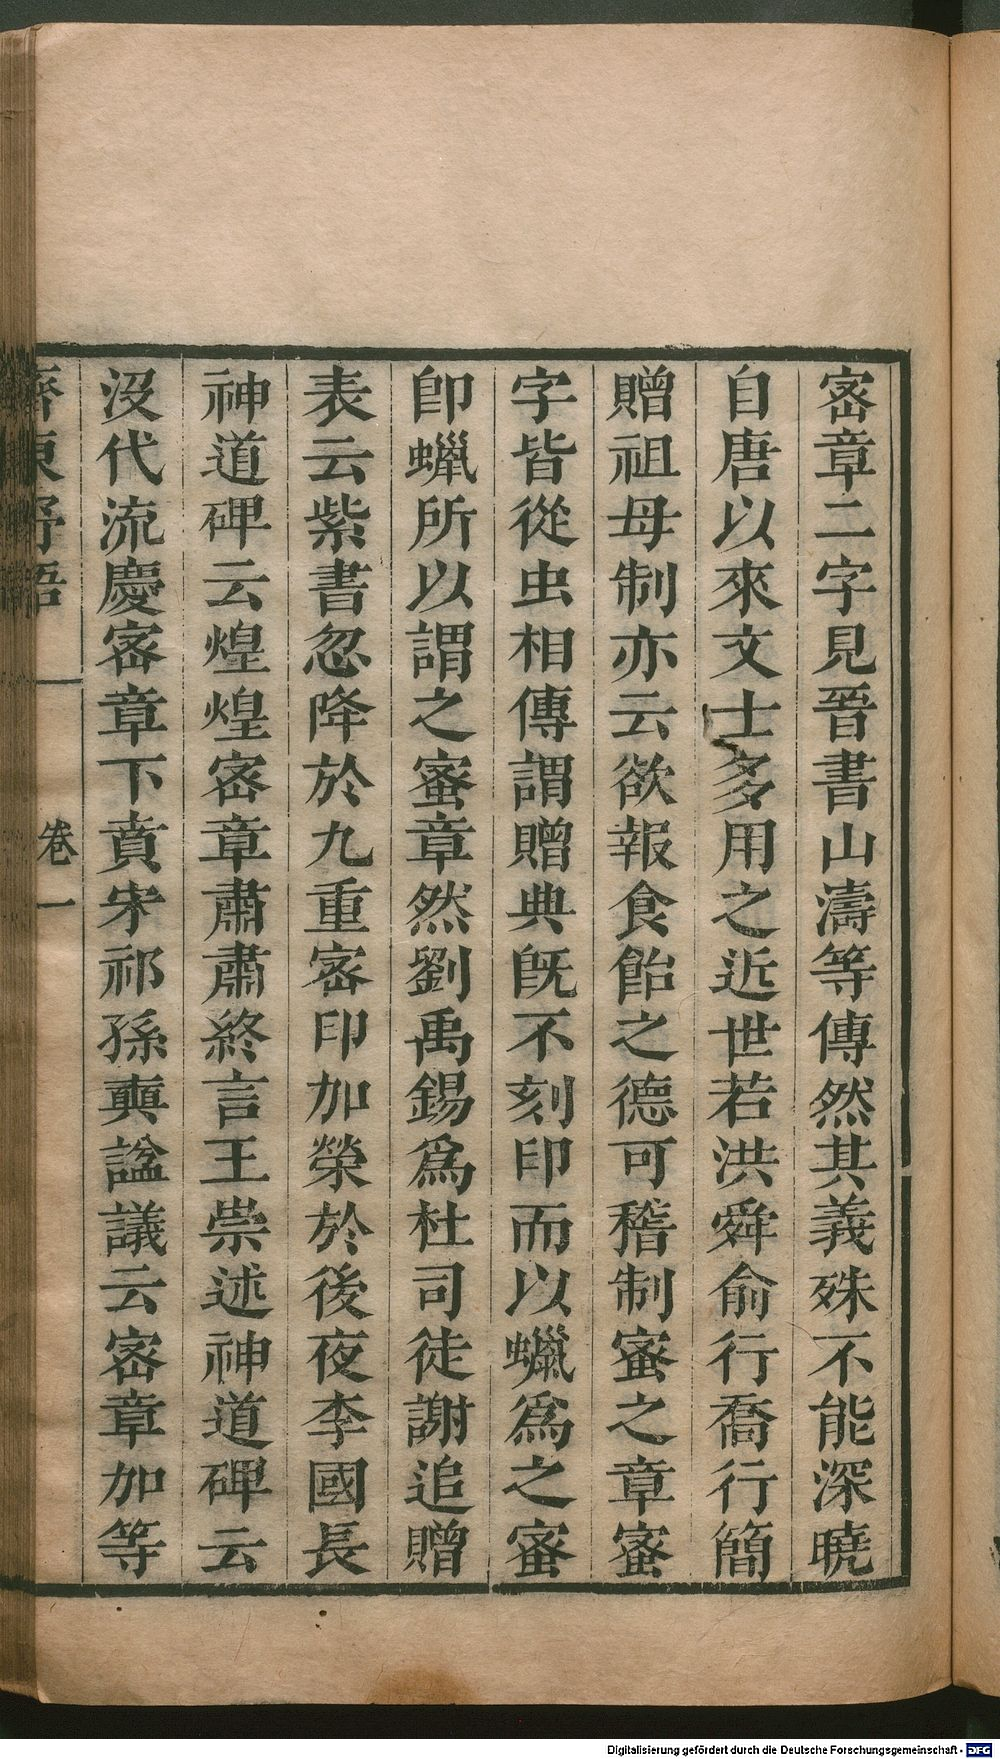 宻章二字見晉書山濤等傳然其義殊不能深曉
自唐以來文士多用之近世若洪舜俞行喬行簡
贈祖母制亦云欲報食飴之德可稽制蜜之章蜜
字皆從虫相傳謂贈典旣不刻印而以蠟爲之蜜
卽蠟所以謂之蜜章然劉禹錫爲杜司徒謝追贈
表云紫書忽降於九重宻印加榮於後夜李國長
神道碑云煌煌宻章肅肅終言王崇述神道碑云
没代流慶宻章下賁宋祁孫奭諡議云宻章加等
齊東野語
卷一
Digitalisierung gefördert durch die Deutsche Forschungsgemeinschaft - DFG